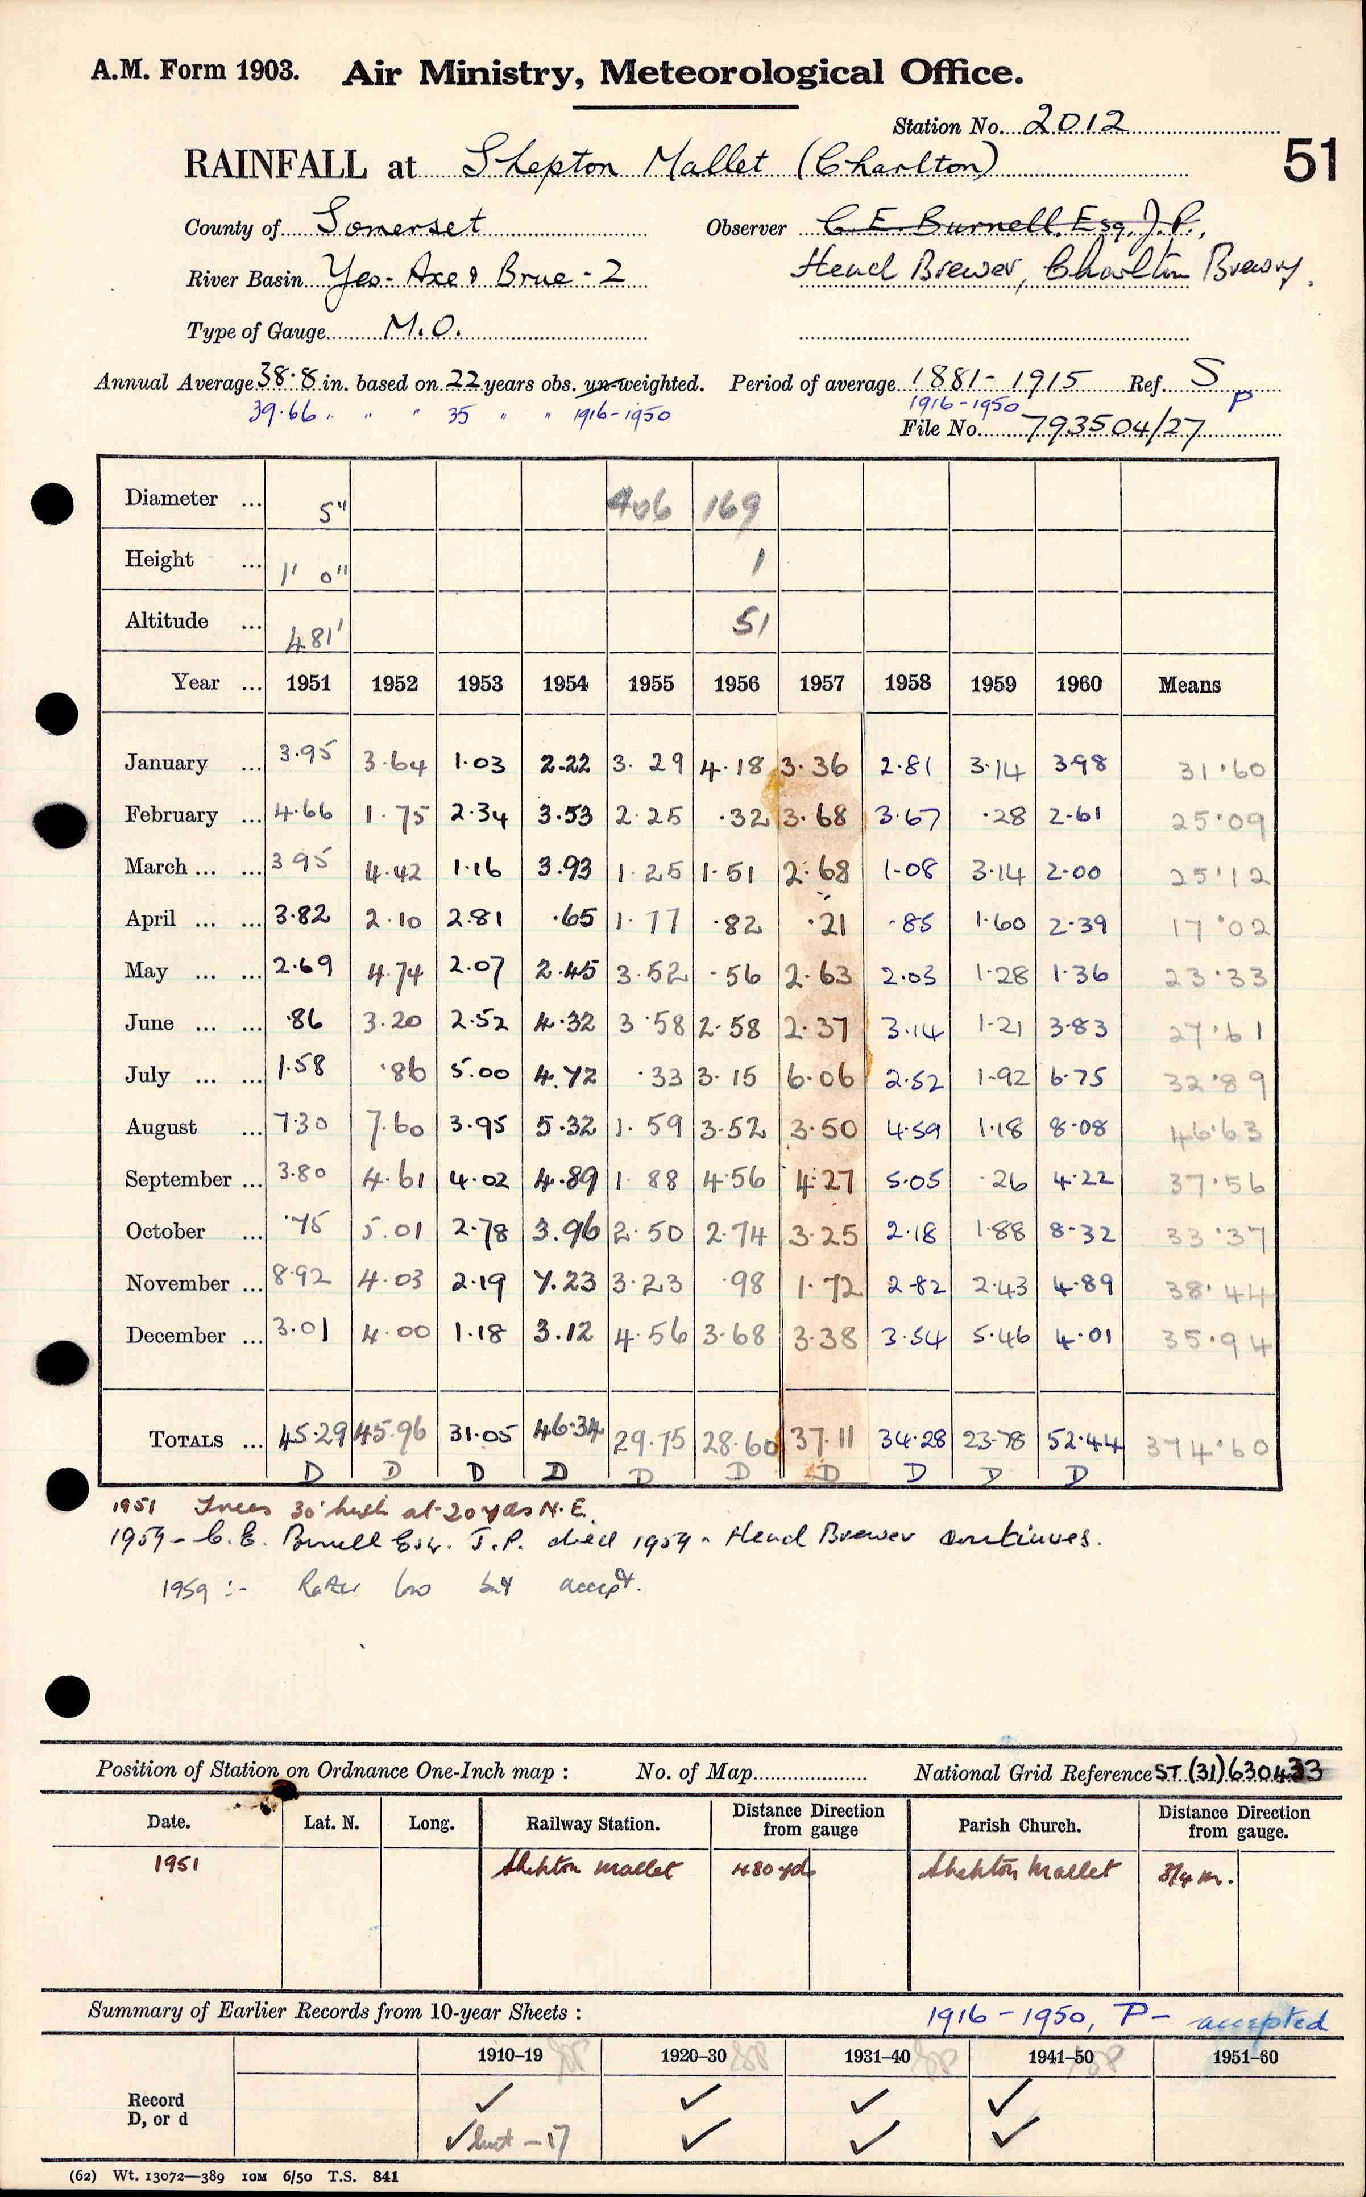 A.M. Form 1903. Air Ministry, Meteorological Office.
Station No. 2012
51
RAINFALL at Shepton Mallet (Charlton)
County of Somerset Observer C. E. Burnell. Esq. J.P.,
River Basin Yeo-Axe & Brue - 2 Head Brewer, Charlton Brewery.
Type of Gauge M.O.
Annual Average 38.8 in. based on 22 years obs. un-weighted. Period of average 1881-1915 Ref. S
39.66 " " " 35 " " 1916-1950 1916-1950 P
File No. 793504/27
Diameter ... 5" 406 169
Height ... 1' 0" 1
Altitude ... 481' 51
Year ... 1951 1952 1953 1954 1955 1956 1957 1958 1959 1960 Means
January ... 3.95 3.64 1.03 2.22 3.29 4.18 3.36 2.81 3.14 3.98 31.60
February ... 4.66 1.75 2.34 3.53 2.25 .32 3.68 3.67 .28 2.61 25.09
March ... ... 3.95 4.42 1.16 3.93 1.25 1.51 2.68 1.08 3.14 2.00 25.12
April ... ... 3.82 2.10 2.81 .65 1.77 .82 .21 .85 1.60 2.39 17.02
May ... ... 2.69 4.74 2.07 2.45 3.52 .56 2.63 2.03 1.28 1.36 23.33
June ... ... .86 3.20 2.52 4.32 3.58 2.58 2.37 3.14 1.21 3.83 27.61
July ... ... 1.58 .86 5.00 4.72 .33 3.15 6.06 2.52 1.92 6.75 32.89
August ... 7.30 7.60 3.95 5.32 1.59 3.52 3.50 4.59 1.18 8.08 46.63
September ... 3.80 4.61 4.02 4.89 1.88 4.56 4.27 5.05 .26 4.22 37.56
October ... .75 5.01 2.78 3.96 2.50 2.74 3.25 2.18 1.88 8.32 33.37
November ... 8.92 4.03 2.19 7.23 3.23 .98 1.72 2.82 2.43 4.89 38.44
December ... 3.01 4.00 1.18 3.12 4.56 3.68 3.38 3.54 5.46 4.01 35.94
TOTALS ... 45.29 45.96 31.05 46.34 29.75 28.60 37.11 34.28 23.78 52.44 374.60
D D D D D D D D D D
1951 Trees 30' high at 20 yds N.E.
1959 - C.E. Burnell Esq. J.P. died 1959 - Head Brewer continues.
1959 :- Rather low but accept.
Position of Station on Ordnance One-Inch map : No. of Map National Grid Reference ST (31) 630433
Date. Lat. N. Long. Railway Station. Distance Direction from gauge Parish Church. Distance Direction from gauge.
1951 Shepton Mallet 480 yds Shepton Mallet 3/4 m.
Summary of Earlier Records from 10-year Sheets : 1916-1950, P- accepted
1910-19 1920-30 1931-40 1941-50 1951-60
Record ✓ ✓ ✓ ✓
D, or d ✓ but -17 ✓ ✓ ✓
(62) Wt. 13072—389 10M 6/50 T.S. 841